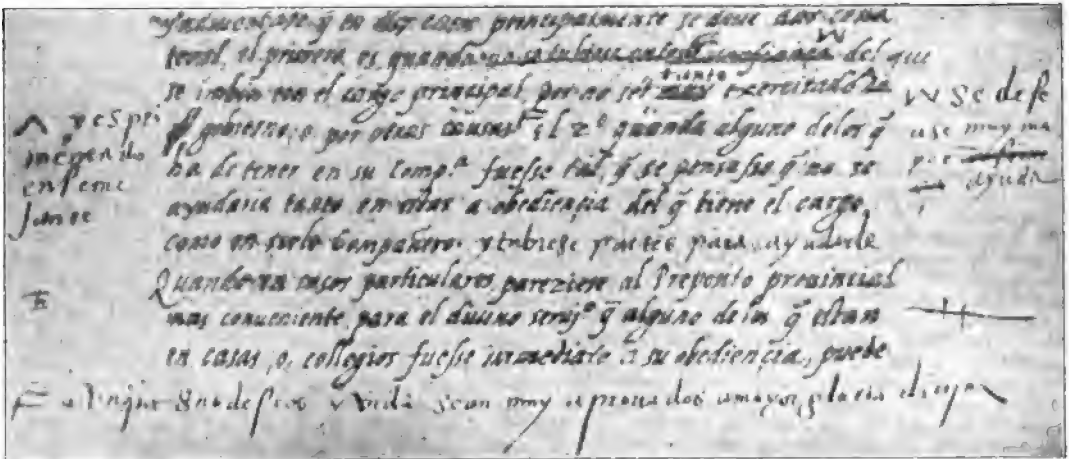 en dos casos principalmente se deue dar cola
teral, el primero es quando del que
se imbia con el cargo principal, por no ser tanto exercitado
gobierno, o por otras causas el 2º quando alguno delos q̃
ha de tener en su Comp.ª fuesse tal, q̃ se pensasse q̃ no se
ayudaria tanto en estar a obediençia del q̃ tiene el cargo,
como en serle Compañero. y tubiese partes para ayudarle
Quando en casos particulares, pareziere al Preposito prouincial
mas conueniente para el diuino seruiº q̃ alguno delos q̃ estan
en casas, o, collegios fuesse immediate a su obediençia, puede
y espri
mentado
en seme
jante
se dese
ase muy ma
yor
ayuda
sus deseos y vida sean muy aprouados a mayor gloria diuina